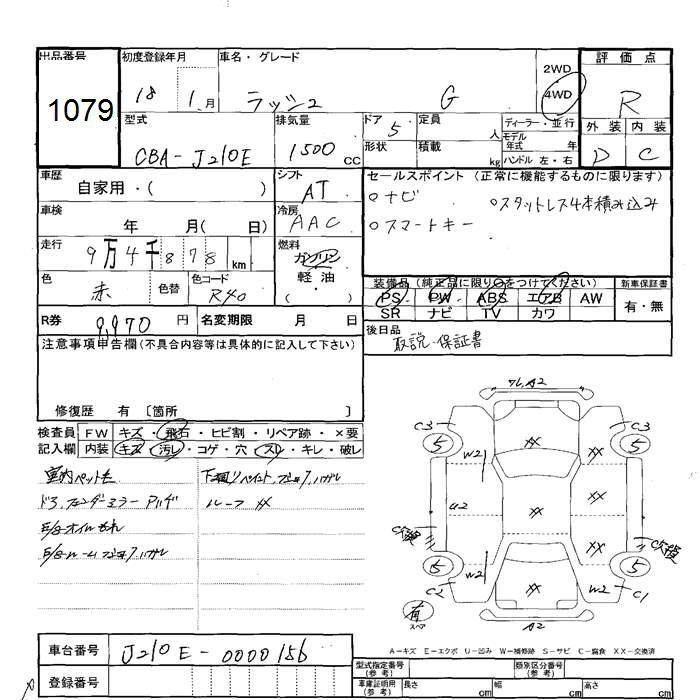 出品番号 初度登録年月 車名・グレード 2WD 評価点
1079 18 1 月 ラッシュ G 4WD R
外装 内装
D C
型式 排気量 ドア 5 定員 人 ディーラー・並行
CBA-J210E 1500 cc 形状 積載 kg モデル年式 年
ハンドル 左・右
車歴 シフト セールスポイント (正常に機能するものに限ります)
自家用・( ) AT ○ナビ ○スタットレス4本積み込み
車検 冷房 ○スマートキー
年 月( 日) AAC
走行 燃料
9万4千878 km ガソリン
軽・油
( )
色 色替 色コード 装備品 (純正品に限り○をつけてください) 新車保証書
赤 R40 PS PW ABS エアB AW 有・無
SR ナビ TV カワ
R券 9,970 円 名変期限 月 日 後日品
取説・保証書
注意事項申告欄(不具合内容等は具体的に記入して下さい)
修復歴 有 〔箇所 〕
検査員 FW キズ・飛石・ヒビ割・リペア跡・×要
記入欄 内装 キズ・汚レ・コゲ・穴・スレ・キレ・破レ
室内ペット毛
ドラ,フェンダーミラー
E/Gオイルもれ
E/Gルーム
下廻りペイント,
ルーフ XX
A2
C3 C3
5 5
W2 XX
XX
U2 XX XX
XX
W2 W2
5 5
C2 XX C1
有
スペア
A2
A-キズ E-エクボ U-凹み W-補修跡 S-サビ C-腐食 XX-交換済
車台番号 J210E-0000156
登録番号
型式指定番号(参考) 類別区分番号(参考)
車庫証明用(参考) 長さ cm 幅 cm 高さ cm